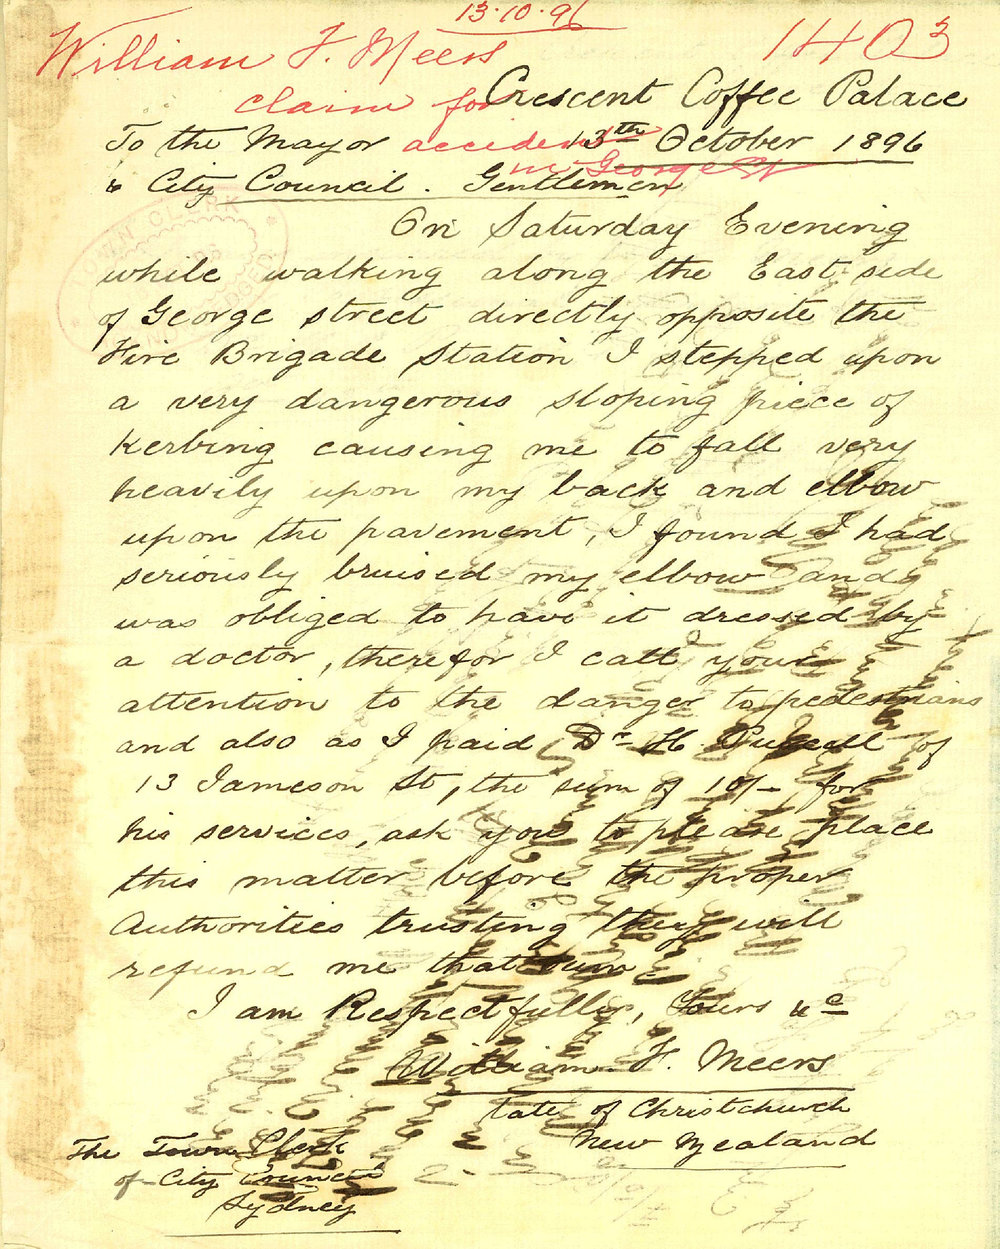 13.10.96
William F. Meers
1403
claim for
accident
in George St
Crescent Coffee Palace
13th October 1896
To the Mayor
& City Council. Gentlemen
On Saturday Evening
while walking along the East side
of George street directly opposite the
Fire Brigade Station I stepped upon
a very dangerous sloping piece of
Kerbing causing me to fall very
heavily upon my back and elbow
upon the pavement, I found I had
seriously bruised my elbow and
was obliged to have it dressed by
a doctor, therefor I call your
attention to the danger to pedestrians
and also as I paid Dr H. of
13 Jameson St, the sum of 10/- for
his services, ask you to please place
this matter before the proper
Authorities trusting they will
refund me that sum.
I am Respectfully, Yours &c
William F. Meers
late of Christchurch
New Zealand
The Town Clerk
of City Council
Sydney
TOWN CLERK